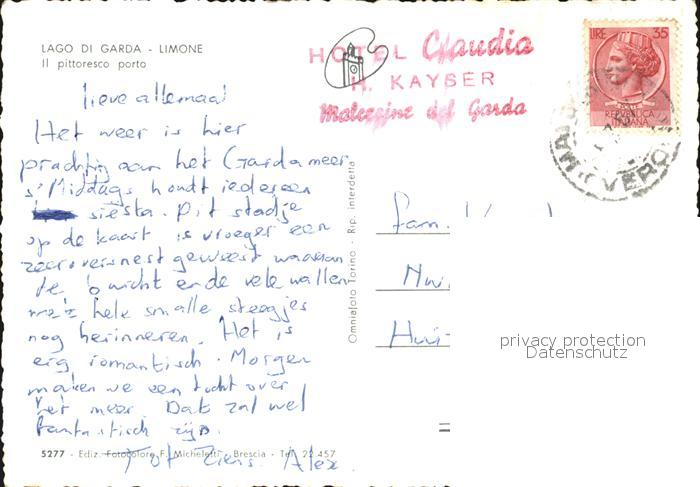 LAGO DI GARDA - LIMONE
Il pittoresco porto
HOTEL Claudia
H. KAYSER
Malcesine del Garda
LIRE 35
REPVBBLICA
ITALIANA
VERO
lieve allemaal
Het weer is hier
prachtig aan het Gardameer
s' Middags houdt iedereen
siesta. Dit stadje
op de kaart is vroeger een
zeeroversnest geweest waaraan
de bocht en de vele wallen
hele smalle steegjes
nog herinneren. Het is
erg romantisch. Morgen
maken we een tocht over
het meer. Dat zal wel
fantastisch zijn.
Tot ziens. Alex.
Omniafoto Torino - Rip. interdetta
fam.
5277 - Ediz. Fotocolore F. Micheletti - Brescia - Tel. 22.457
privacy protection
Datenschutz